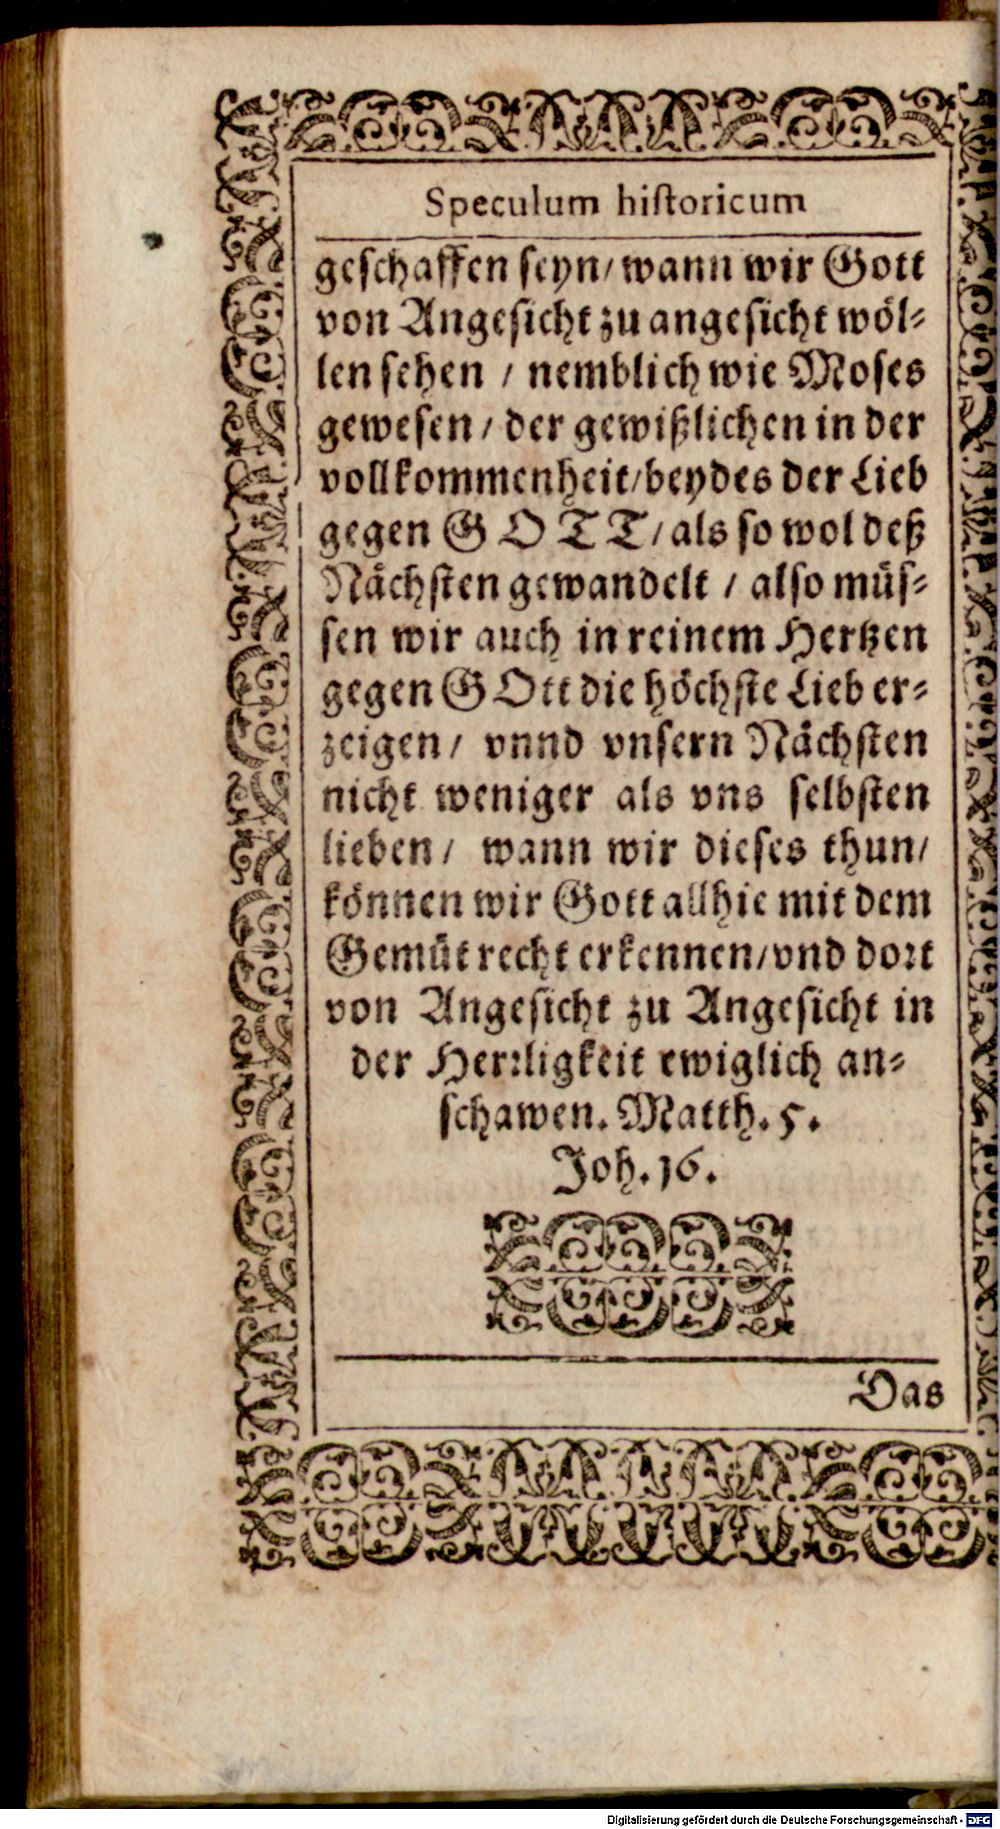 Speculum hiſtoricum
geſchaffen ſeyn/ wann wir Gott
von Angeſicht zu angeſicht wöl⸗
len ſehen / nemblich wie Moſes
geweſen / der gewißlichen in der
vollkommenheit/ beydes der Lieb
gegen GOTT/ als ſo wol deß
Nächſten gewandelt / alſo müſ⸗
ſen wir auch in reinem Hertzen
gegen GOtt die höchſte Lieb er⸗
zeigen / vnnd vnſern Nächſten
nicht weniger als vns ſelbſten
lieben / wann wir dieſes thun/
können wir Gott allhie mit dem
Gemüt recht erkennen/ vnd dort
von Angeſicht zu Angeſicht in
der Herꝛligkeit ewiglich an⸗
ſchawen. Matth. 5.
Joh. 16.
Das
Digitalisierung gefördert durch die Deutsche Forschungsgemeinschaft - DFG